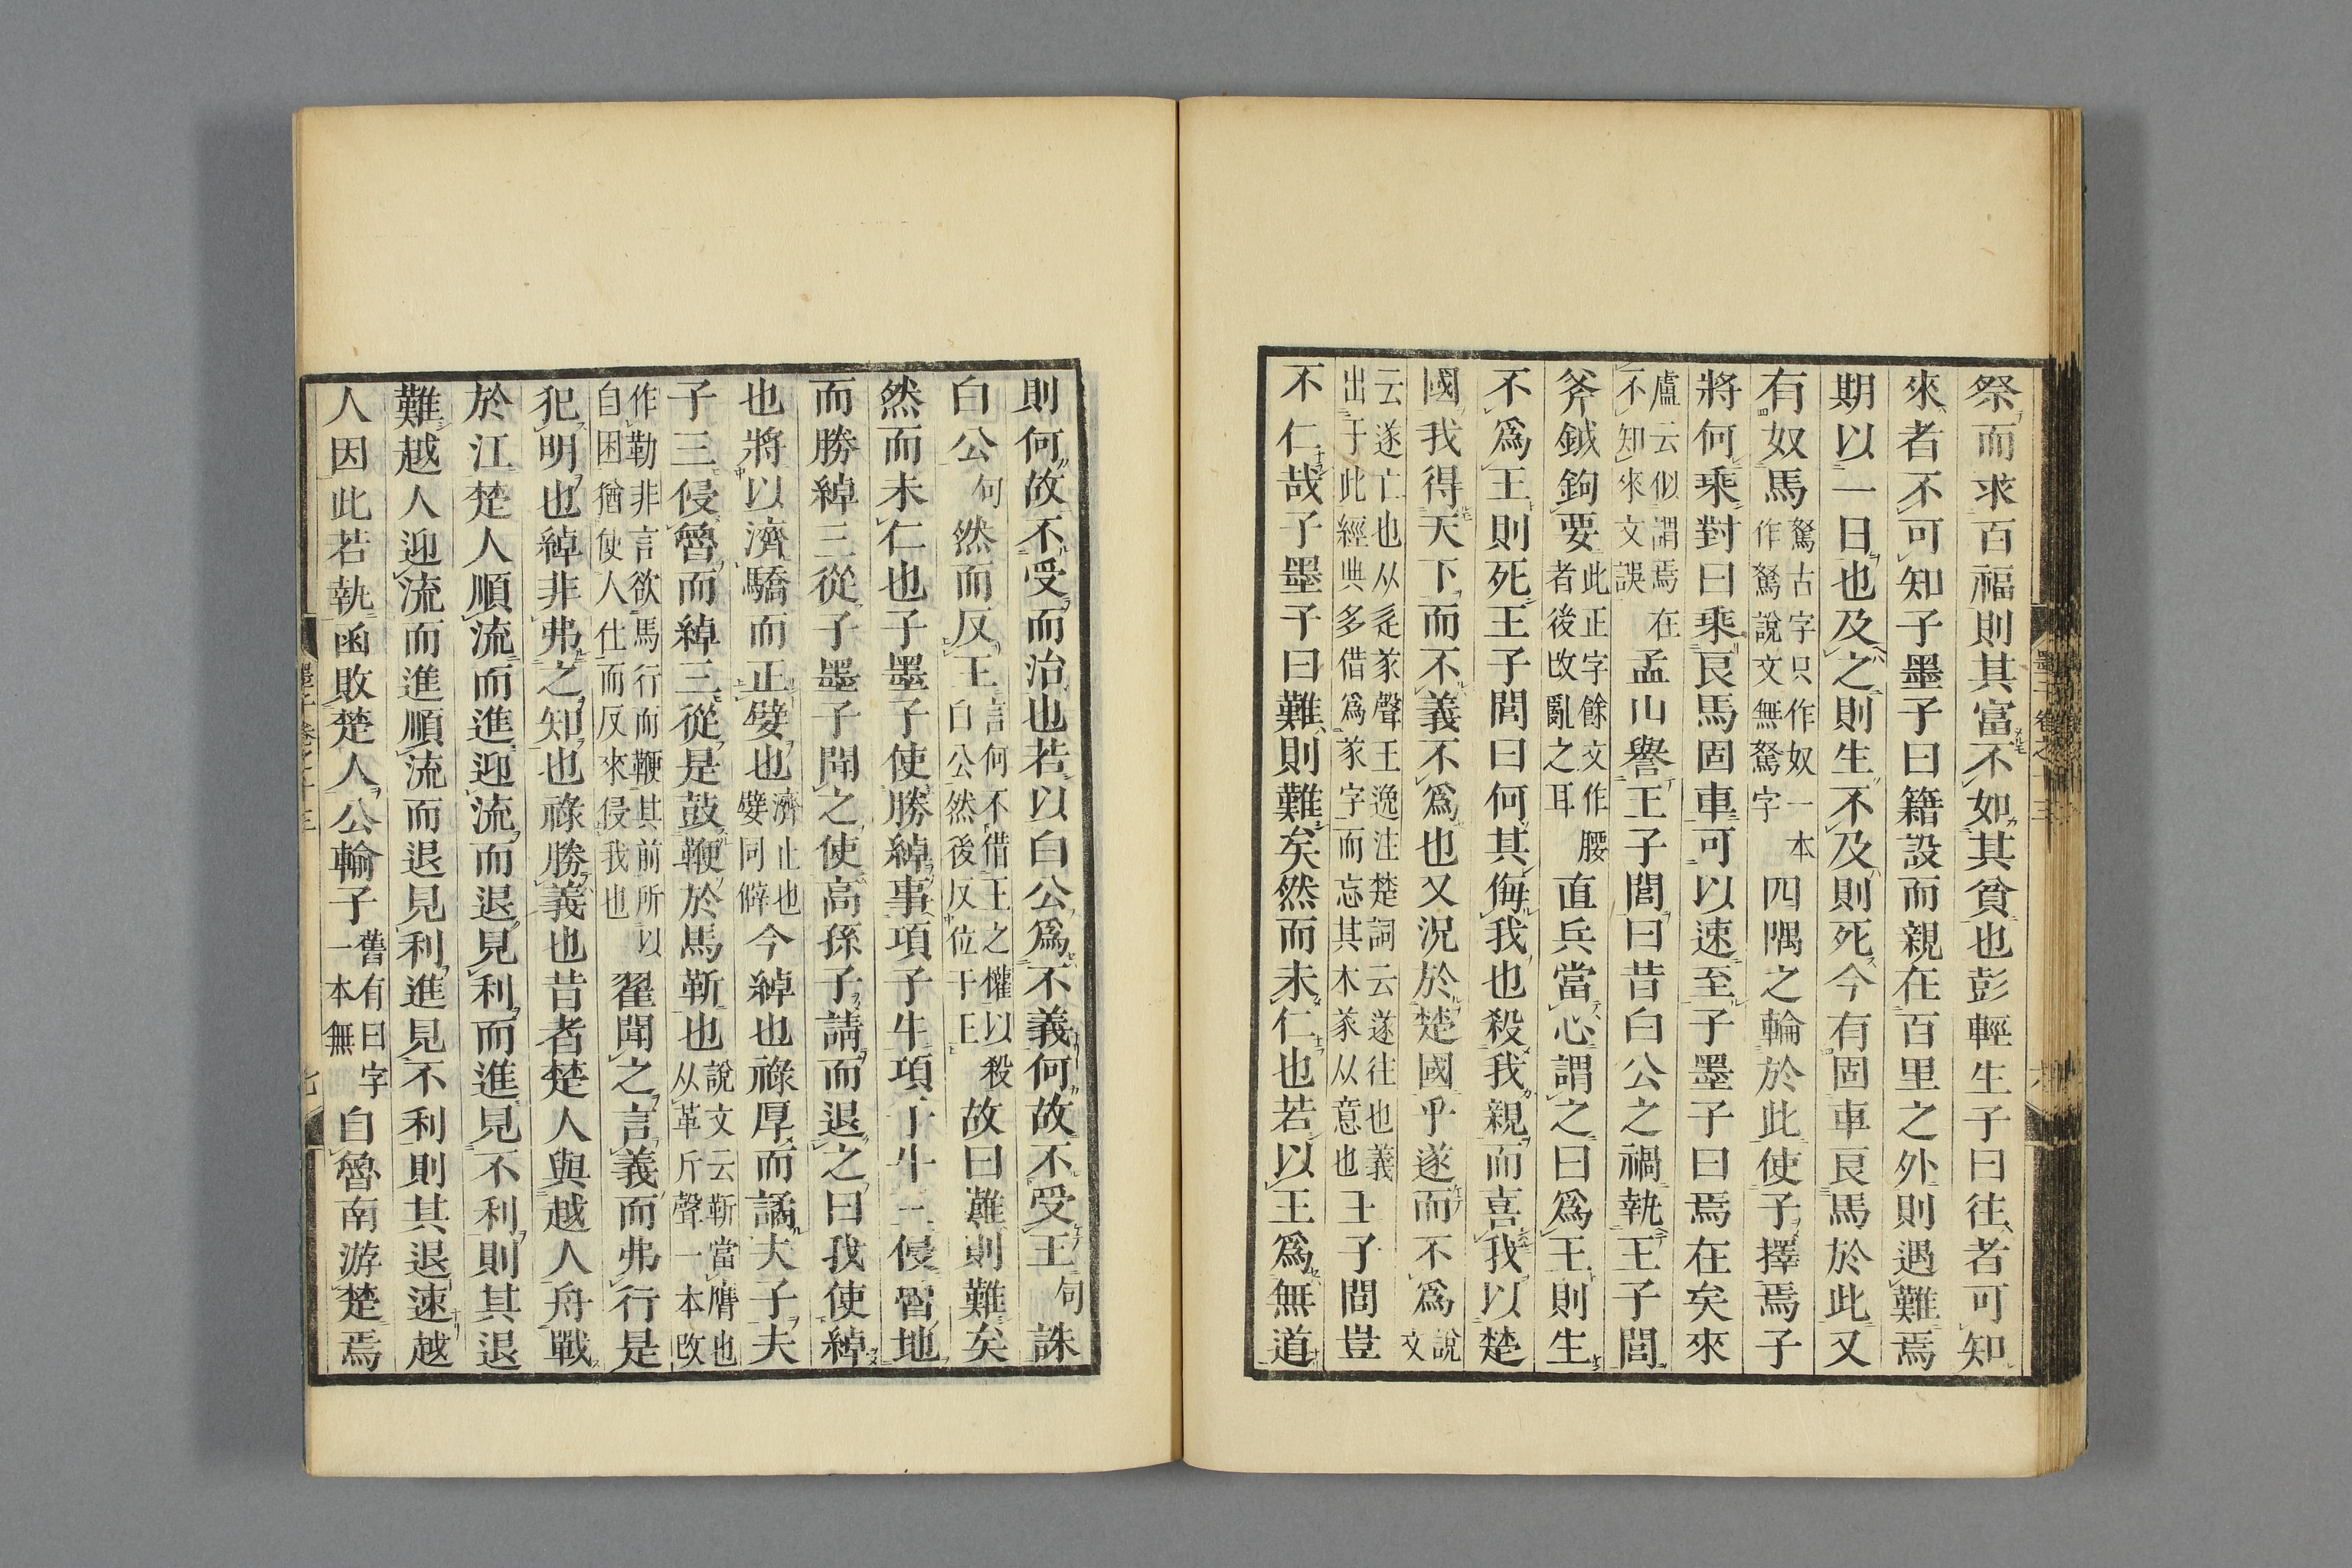 祭而求百福則其富不如其貧也彭輕生子曰往者可知
來者不可知子墨子曰籍設而親在百里之外則遇難焉
期以一日也及之則生不及則死今有固車良馬於此又
有奴馬駑古字只作奴一本作駑說文無駑字四隅之輪於此使子擇焉子
將何乘對曰乘良馬固車可以速至子墨子曰焉在矣來
盧云似謂焉在不知來文誤孟山譽王子閭曰昔白公之禍執王子閭
斧鉞鉤要此正字餘文作腰者後改亂之耳直兵當心謂之曰為王則生
不為王則死王子閭曰何其侮我也殺我親而喜我以楚
國我得天下而不義不為也又況於楚國乎遂而不為說文
云遂亡也从辵㒸聲王逸注楚詞云遂往也義出于此經典多借為㒸字而忘其本㒸从意也王子閭豈
不仁哉子墨子曰難則難矣然而未仁也若以王為無道
墨子卷之十三
六
則何故不受而治也若以白公為不義何故不受王句誅
白公句然而反王言何不借王之權以殺白公然後反位于王故曰難則難矣
然而未仁也子墨子使勝綽事項子牛項子牛三侵魯地
而勝綽三從子墨子聞之使高孫子請而退之曰我使綽
也將以濟驕而正嬖也濟止也嬖同僻今綽也祿厚而譎夫子夫
子三侵魯而綽三從是鼓鞭於馬靳也說文云靳當膺也从革斤聲一本改
作勒非言欲馬行而鞭其前所以自困猶使人仕而反來侵我也翟聞之言義而弗行是
犯明也綽非弗之知也祿勝義也昔者楚人與越人舟戰
於江楚人順流而進迎流而退見利而進見不利則其退
難越人迎流而進順流而退見利進見不利則其退速越
人因此若執函敗楚人公輸子舊有曰字一本無自魯南游楚焉
墨子卷之十三
七